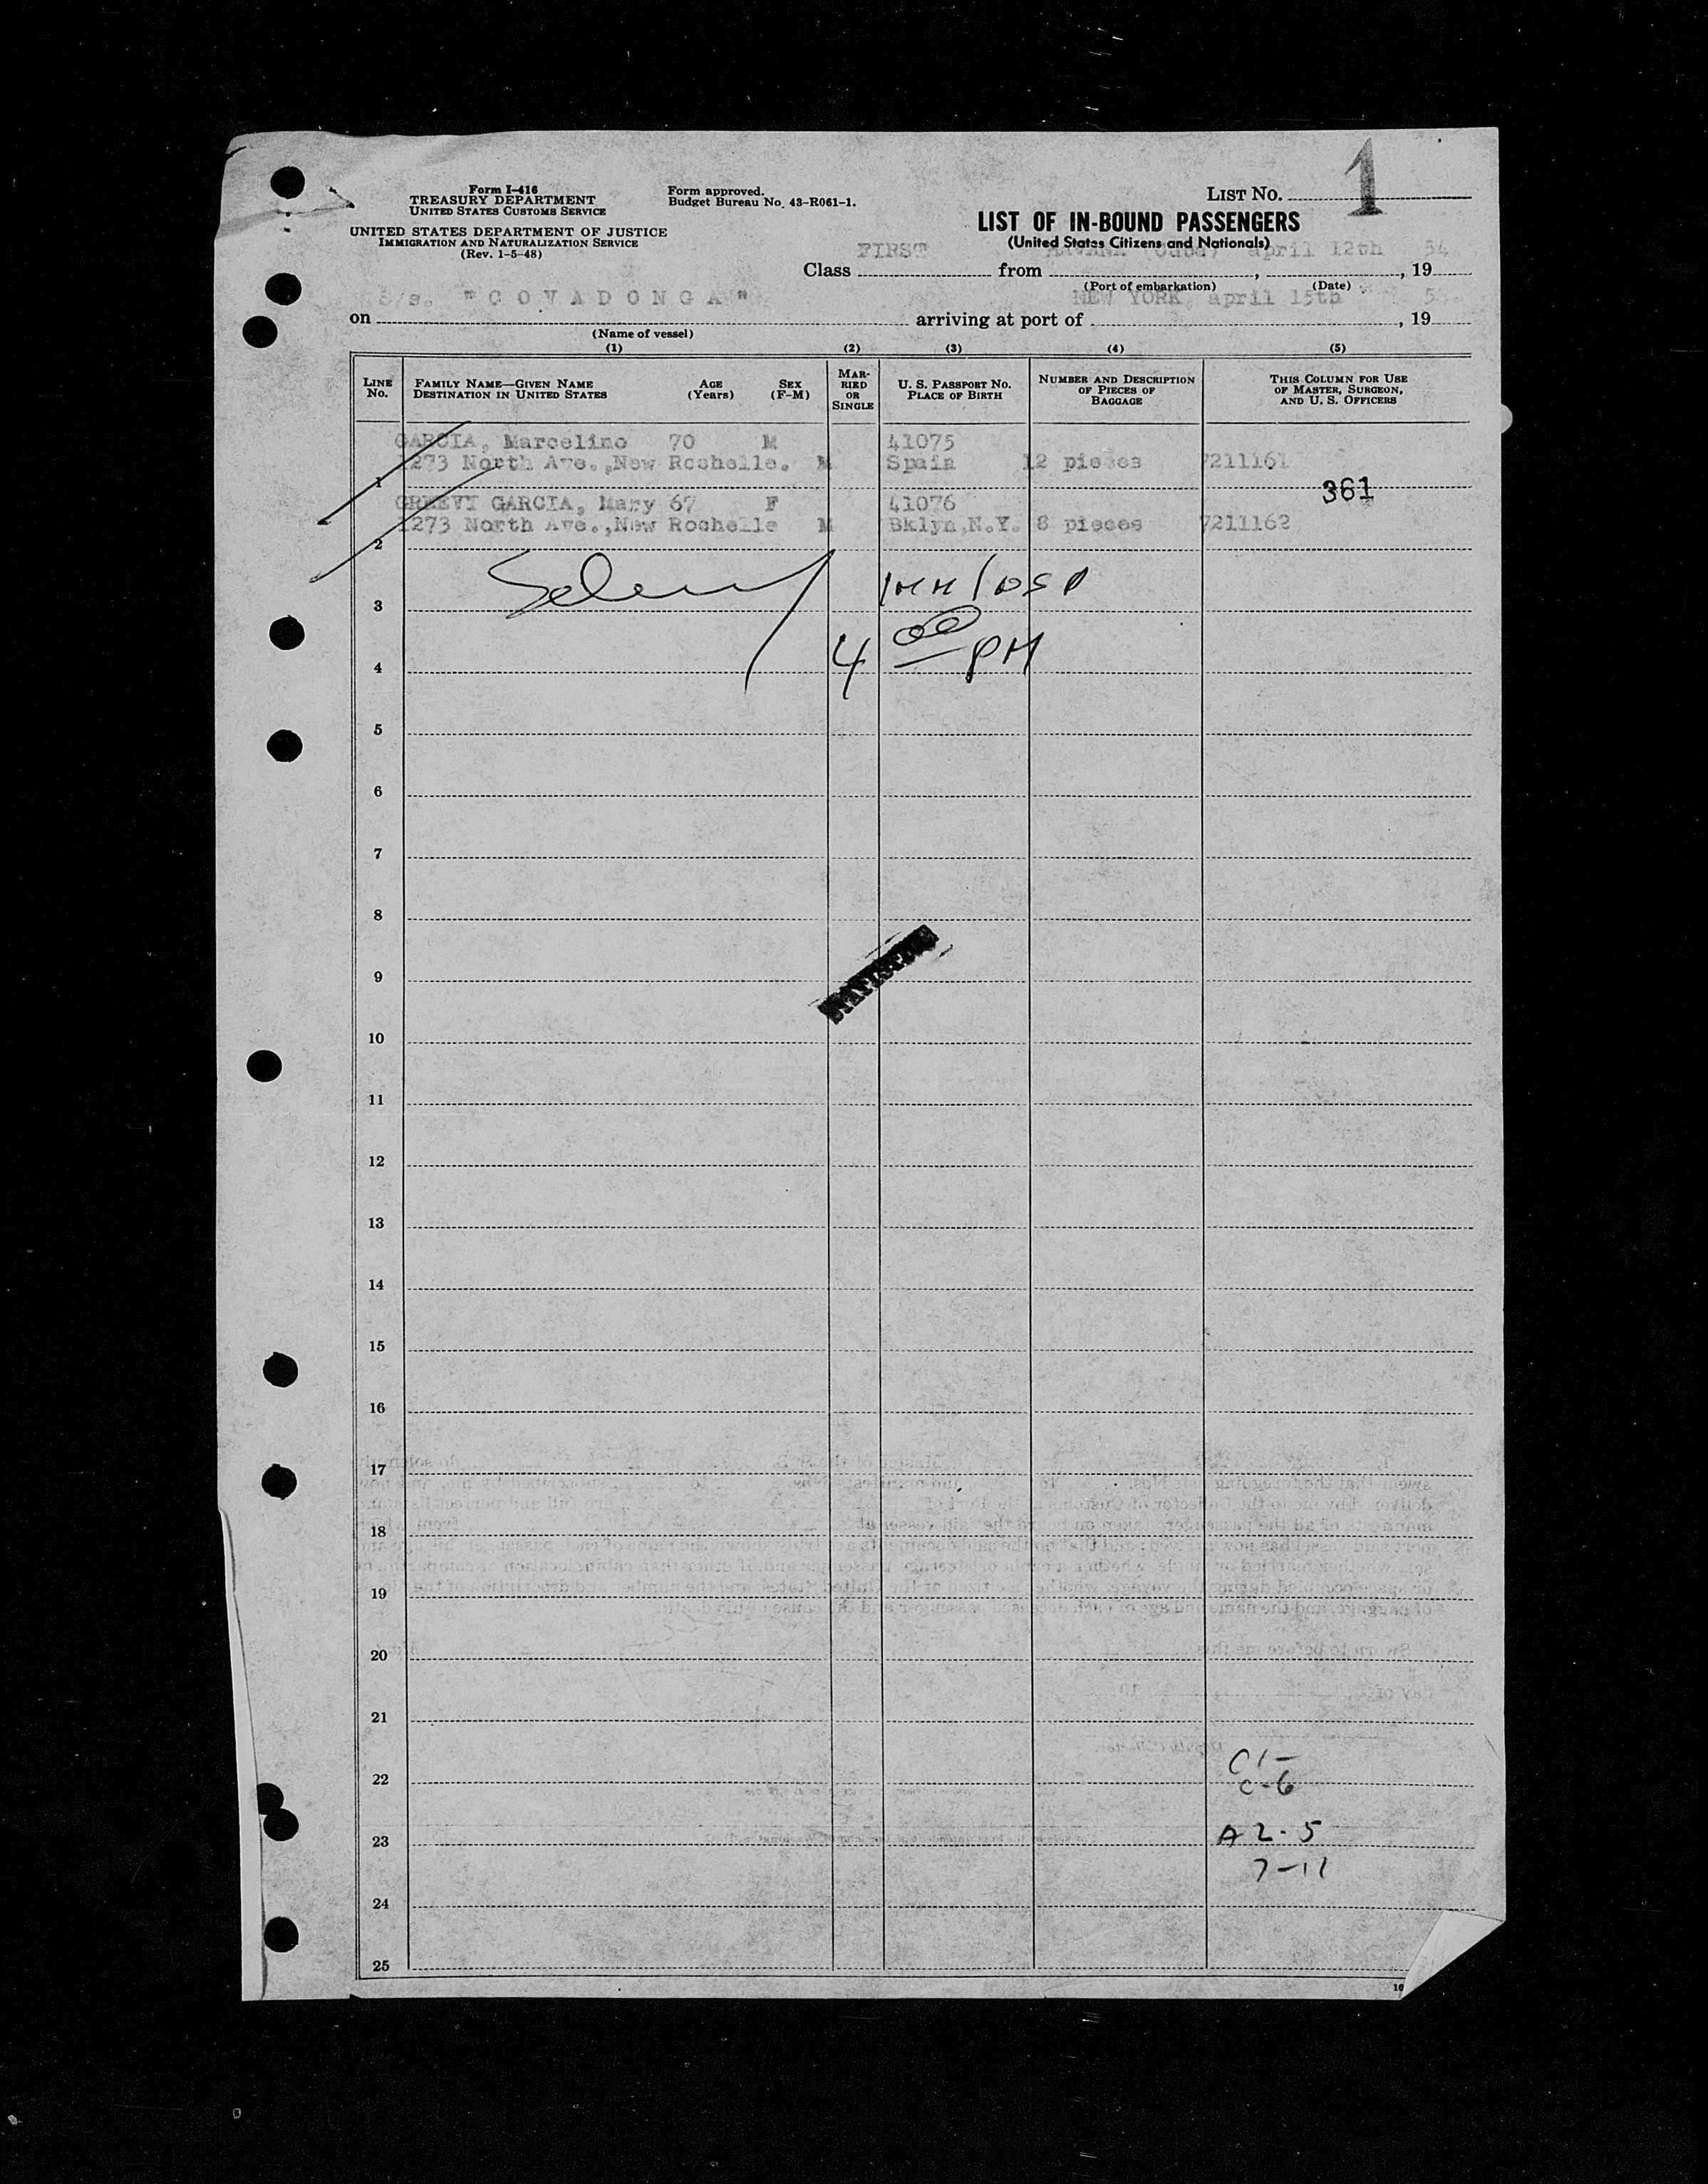 Form I-416
TREASURY DEPARTMENT
UNITED STATES CUSTOMS SERVICE
UNITED STATES DEPARTMENT OF JUSTICE
IMMIGRATION AND NATURALIZATION SERVICE
(Rev. 1-5-48)
Form approved.
Budget Bureau No. 43-R061-1.
LIST NO. 1
LIST OF IN-BOUND PASSENGERS
(United States Citizens and Nationals)
Class FIRST from HAVANA (Cuba) april 12th, 19 54
(Port of embarkation) (Date)
on S/s. "COVADONGA" arriving at port of NEW YORK, april 15th, 19 5
(Name of vessel)
(1) (2) (3) (4) (5)
LINE NO. FAMILY NAME—GIVEN NAME DESTINATION IN UNITED STATES AGE (Years) SEX (F-M) MARRIED OR SINGLE U. S. PASSPORT NO. PLACE OF BIRTH NUMBER AND DESCRIPTION OF PIECES OF BAGGAGE THIS COLUMN FOR USE OF MASTER, SURGEON, AND U. S. OFFICERS
GARCIA, Marcelino 70 M 41075
1273 North Ave.,New Rochelle. M Spain 12 pieces 7211161
1 361
GREEVY GARCIA, Mary 67 F 41076
1273 North Ave.,New Rochelle M Bklyn,N.Y. 8 pieces 7211162
2
3
4 4 00 PM
5
6
7
8
9
10
11
12
13
14
15
16
17
18
19
20
21
C 1-
22 C-6
23 A 2-5
7-11
24
25